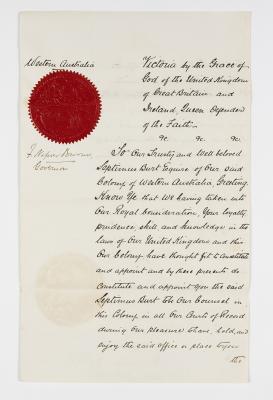 Western Australia
Victoria by the Grace of
God of the United Kingdom
of Great Britain and
Ireland, Queen Defender
of the Faith
&c. &c. &c.
F. Napier Broome
Governor
To Our Trusty and Well beloved
Septimus Burt Esquire of Our said
Colony of Western Australia, Greeting.
Know Ye that We having taken into
Our Royal Consideration, Your loyalty
prudence, skill and knowledge in the
laws of Our United Kingdom and this
Our Colony have thought fit to constitute
and appoint and by these presents do
constitute and appoint You the said
Septimus Burt to be Our Counsel in
this Colony in all Our Courts of Record
during Our pleasure To have, hold, and
enjoy the said office or place to you
the